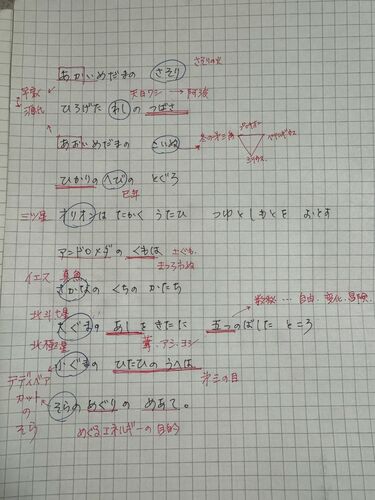 さそりの火
あかいめだまの さそり
平家
源氏
天日ワシ → 阿波
ひろげた わしの つばさ
冬の大三角
あおいめだまの こいぬ
ひかりの へびの とぐろ
巳年
三ツ星 オリオンは たかく うたひ つゆと しもとを おとす
アンドロメダの くもは 土ぐも
まつろわぬ
イエス
さかなの くちの かたち
数秘 … 自由、変化、冒険
北斗七星
大ぐまの あしをきたに 五つのばした ところ
北極星
葦・アシ・ヨシ
小ぐまの ひたひの うへは
第三の目
テディベア
カットのそら
そらの めぐりの めあて。
めぐるエネルギーの目的